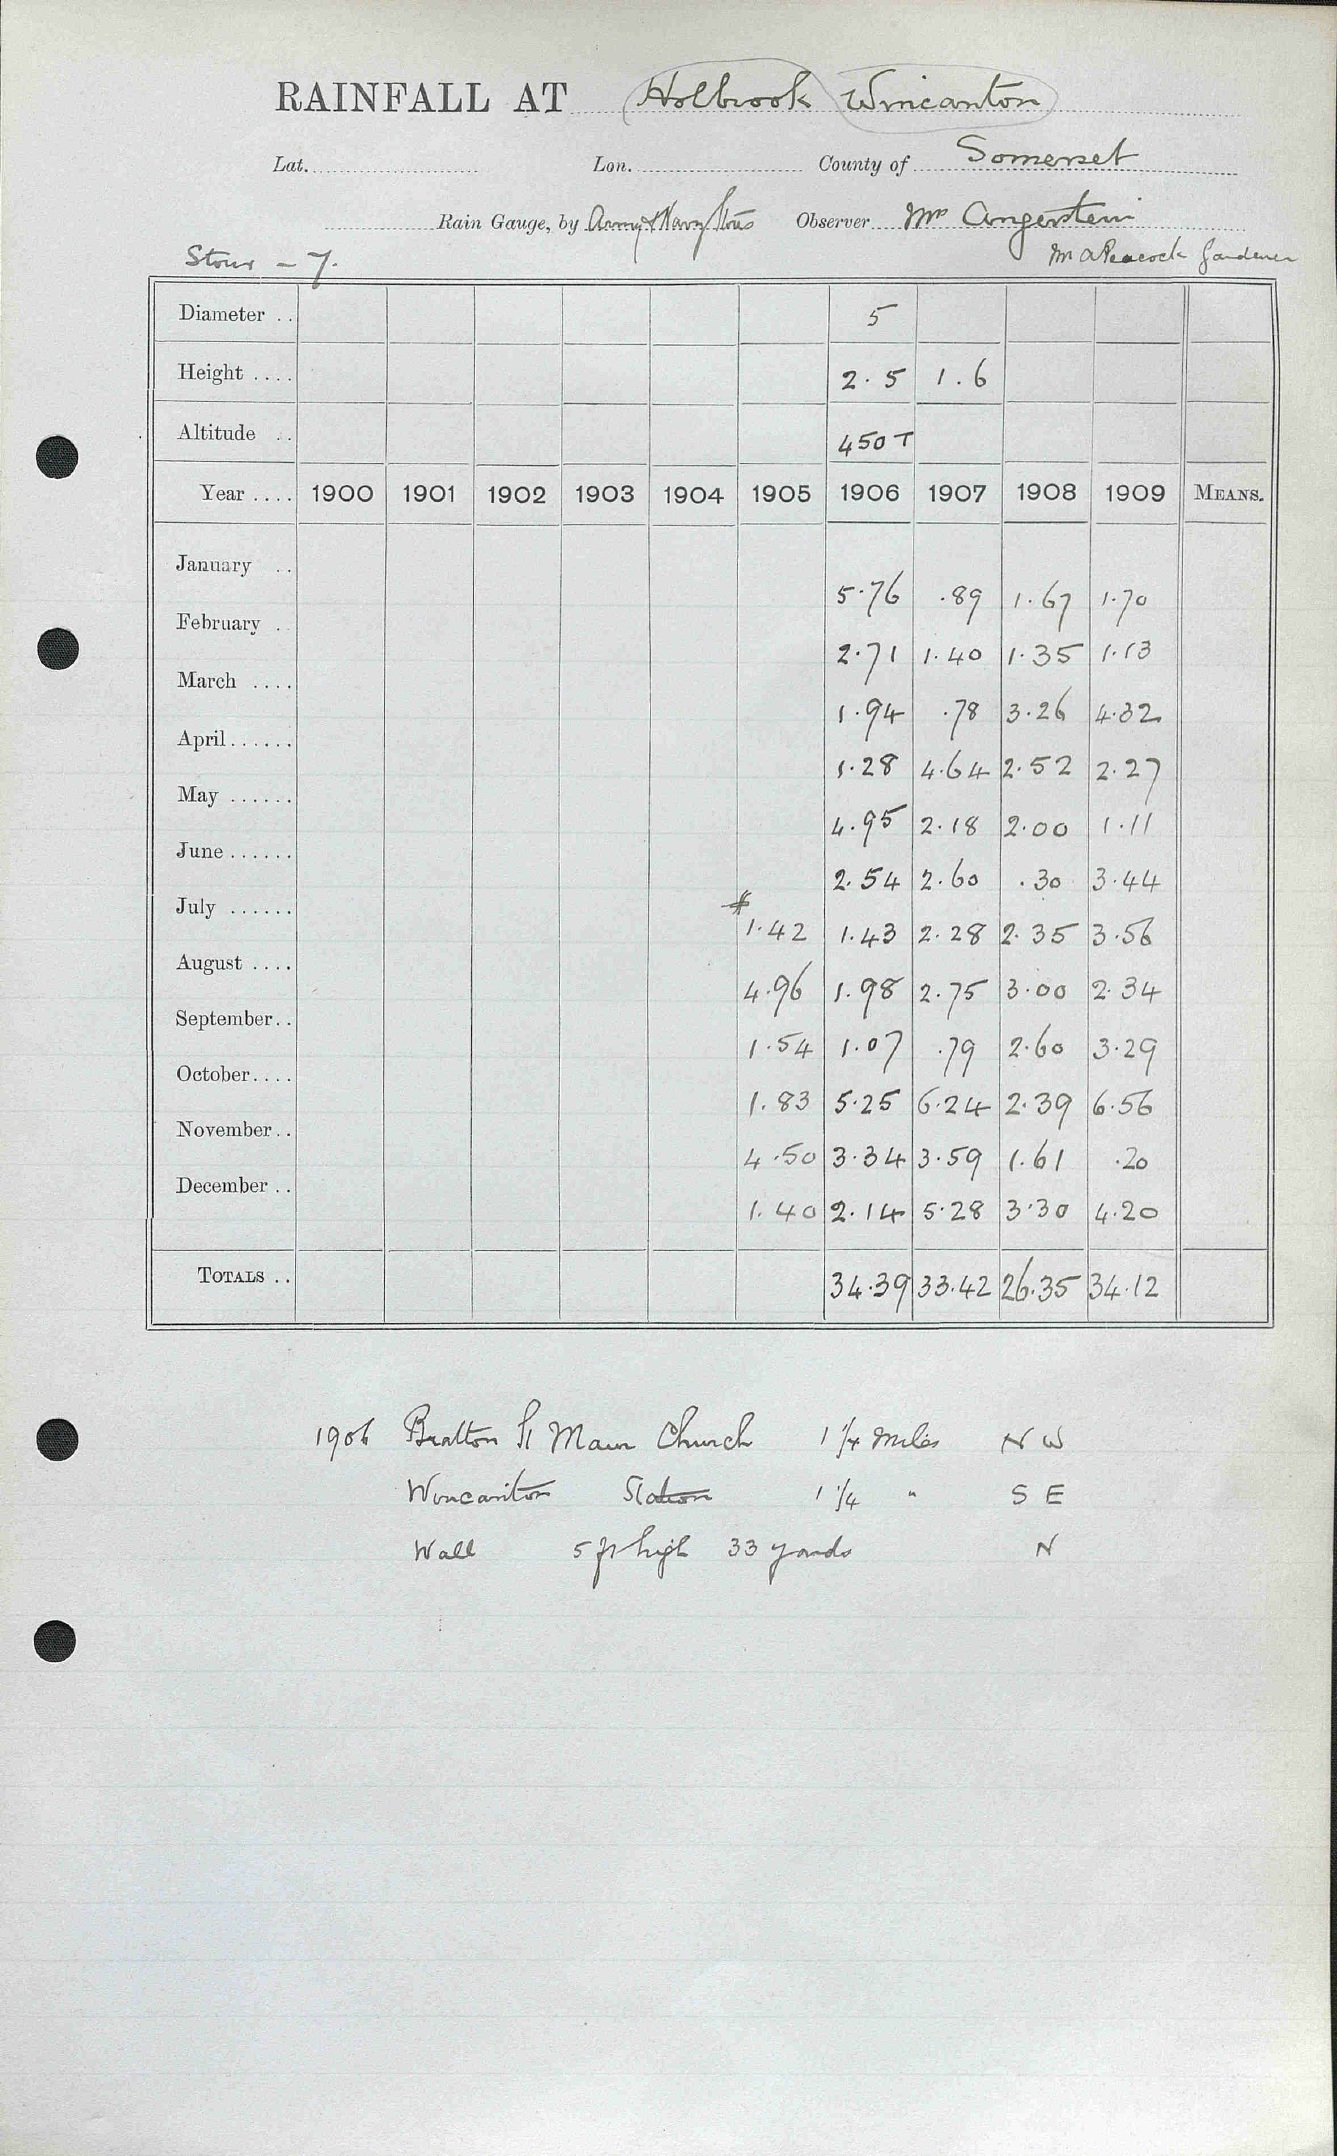 RAINFALL AT Holbrook Wincanton
Lat. Lon. County of Somerset
Rain Gauge, by Army & Navy Stores Observer Mrs Angerstein
Stour - 7. Mr A Peacock Gardener
Diameter .. 5
Height .... 2.5 1.6
Altitude .. 450 T
Year .... 1900 1901 1902 1903 1904 1905 1906 1907 1908 1909 MEANS.
January .. 5.76 .89 1.67 1.70
February . 2.71 1.40 1.35 1.13
March .... 1.94 .78 3.26 4.32
April...... 1.28 4.64 2.52 2.27
May ...... 4.95 2.18 2.00 1.11
June...... 2.54 2.60 .30 3.44
July ...... # 1.42 1.43 2.28 2.35 3.56
August .... 4.96 1.98 2.75 3.00 2.34
September.. 1.54 1.07 .79 2.60 3.29
October.... 1.83 5.25 6.24 2.39 6.56
November.. 4.50 3.34 3.59 1.61 .20
December .. 1.40 2.14 5.28 3.30 4.20
TOTALS .. 34.39 33.42 26.35 34.12
1906 Bratton St Maur Church 1 1/4 Miles N W
Wincanton Station 1 1/4 " S E
Wall 5 ft high 33 yards N